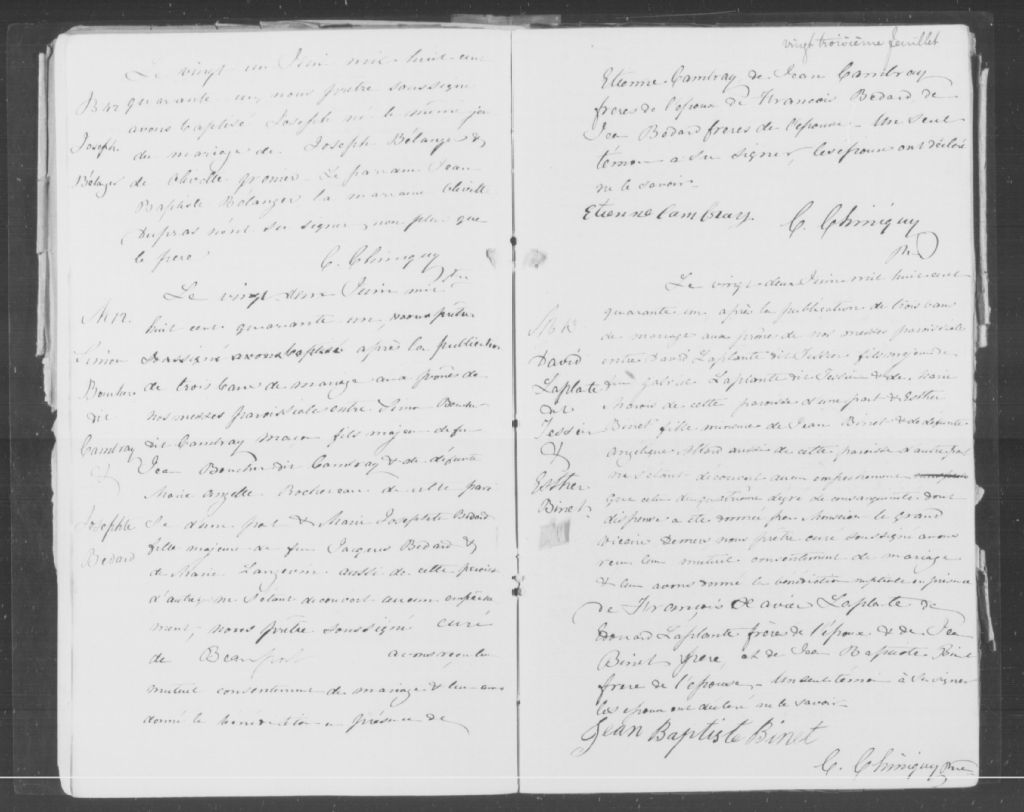 Le vingt un Juin mil huit cent
B 42 quarante un, nous prêtre soussigné
avons baptisé Joseph né le même jour
Joseph du mariage de Joseph Bélanger &
Bélager de Olivette grenier. Le parrain Jean
Baptiste Bélanger la marraine Olivette
Dupras n'ont su signer non plus que
le pere
C. Chiniquy ptre
Le vingt deux Juin mil
M 12. huit cent quarante un, nous prêtre
Simon soussigné avons baptisé après la publication
Boucher de trois bans de mariage aux prônes de
dit nos messes paroissiales entre Simo Boucher
Cambray dit Cambray macon fils majeur de feu
& Jea Boucher dit Cambray & de défunte
Marie angelle Rochereau de cette paroi
Josephte sse d'une part & Marie Josephte Bedard
Bedard fille majeure de feu Jacques Bedard &
de Marie Langevin aussi de cette paroisse
d'autre ne s'étant decouvert aucun empêche
ment, nous prêtre soussigné curé
de Beauport avons reçu leur
mutuel consentement de mariage & leur avons
donné la bénédiction en présence de
vingt troisième feuillet
Etienne Cambray de Jean Cambray
freres de l'epoux de Francois Bedard de
Jea Bedard freres de l'epouse. Un seul
témoin a su signer, les epoux ont déclaré
ne le savoir.
Etienne Cambray.
C. Chiniquy
Ptre
Le vingt deux Juin mil huit cent
quarante un après la publication de trois bans
M 13 de mariage aux prônes de nos messes paroissiales
David entre David Laplante dit Tessier fils majeur de
Laplate feu Gabriel Laplante dit Tessier & de Marie
dit Marois de cette paroisse d'une part & Esther
Tessier Binet fille mineure de Jean Binet & de defunte
& Angelique Allard aussi de cette paroisse d'autre part
ne s'étant découvert aucun empêchement
Esther que celui du quatrieme degré de consanguinité dont
Binet dispense a été donnée par Monsieur le grand
vicaire Demers nous prêtre curé soussigné avons
reçu leur mutuel consentement de mariage
& leur avons donné la benediction nuptiale en présence
de François Xavier Laplate de
Edouard Laplante frère de l'époux & de Jea
Binet frere, et de Jea Baptiste Binet
frere de l'epouse. Un seul témoin a su signer
les epoux ont declaré ne le savoir.
Jean Baptiste Binet
C. Chiniquy Ptre